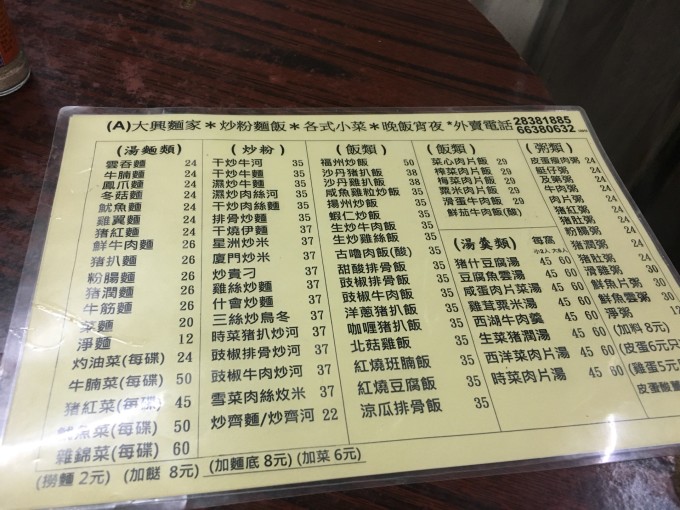 (A)大興麵家＊炒粉麵飯＊各式小菜＊晚飯宵夜*外賣電話 28381885
66380632
(湯麵類)
雲吞麵 24
牛腩麵 24
鳳爪麵 24
冬菇麵 24
魷魚麵 24
雞翼麵 24
猪紅麵 24
鮮牛肉麵 26
猪扒麵 26
粉腸麵 26
猪潤麵 26
牛筋麵 26
菜麵 20
淨麵 12
灼油菜(每碟) 24
牛腩菜(每碟) 50
猪紅菜(每碟) 45
魷魚菜(每碟) 50
雜錦菜(每碟) 60
(炒粉)
干炒牛河 35
干炒牛麵 35
濕炒牛麵 35
濕炒肉絲河 35
干炒肉絲麵 35
排骨炒麵 35
干燒伊麵 35
星洲炒米 37
廈門炒米 37
炒貴刁 37
雞絲炒麵 37
什會炒麵 37
三絲炒烏冬 37
時菜猪扒炒河 37
豉椒排骨炒河 37
豉椒牛肉炒河 37
雪菜肉絲炆米 37
炒齊麵/炒齊河 22
(飯類)
福州炒飯 50
沙丹猪扒飯 38
沙丹雞扒飯 38
咸魚雞粒炒飯 35
揚州炒飯 35
蝦仁炒飯 35
生炒牛肉飯 35
生炒雞絲飯 35
古嚕肉飯(酸) 35
甜酸排骨飯 35
豉椒排骨飯 35
豉椒牛肉飯 35
洋葱猪扒飯 35
咖喱猪扒飯 35
北菇雞飯 35
紅燒班腩飯 35
紅燒豆腐飯 35
涼瓜排骨飯 35
(飯類)
菜心肉片飯 29
榨菜肉片飯 29
梅菜肉片飯 29
粟米肉片飯 29
滑蛋牛肉飯 29
鮮茄牛肉飯(酸)
(湯羹類) 每窩
猪什豆腐湯 45 60
豆腐魚雲湯 45 60
咸蛋肉片菜湯 45 60
雞茸粟米湯 45 60
西湖牛肉羹 45 60
生菜猪潤湯 45 60
西洋菜肉片湯 45 60
時菜肉片湯 45 60
(粥類)
皮蛋瘦肉粥 24
艇仔粥 24
及第粥 24
牛肉粥 24
肉片粥 24
猪紅粥 24
猪肚粥 24
粉腸粥 24
猪潤粥 24
滑雞粥 30
鮮魚片粥 30
鮮魚雲粥 30
淨粥 12
(加料 8元)
(皮蛋 6元
(雞蛋 5元
皮蛋酸薑
(撈麵 2元) (加餸 8元) (加麵底 8元) (加菜 6元)